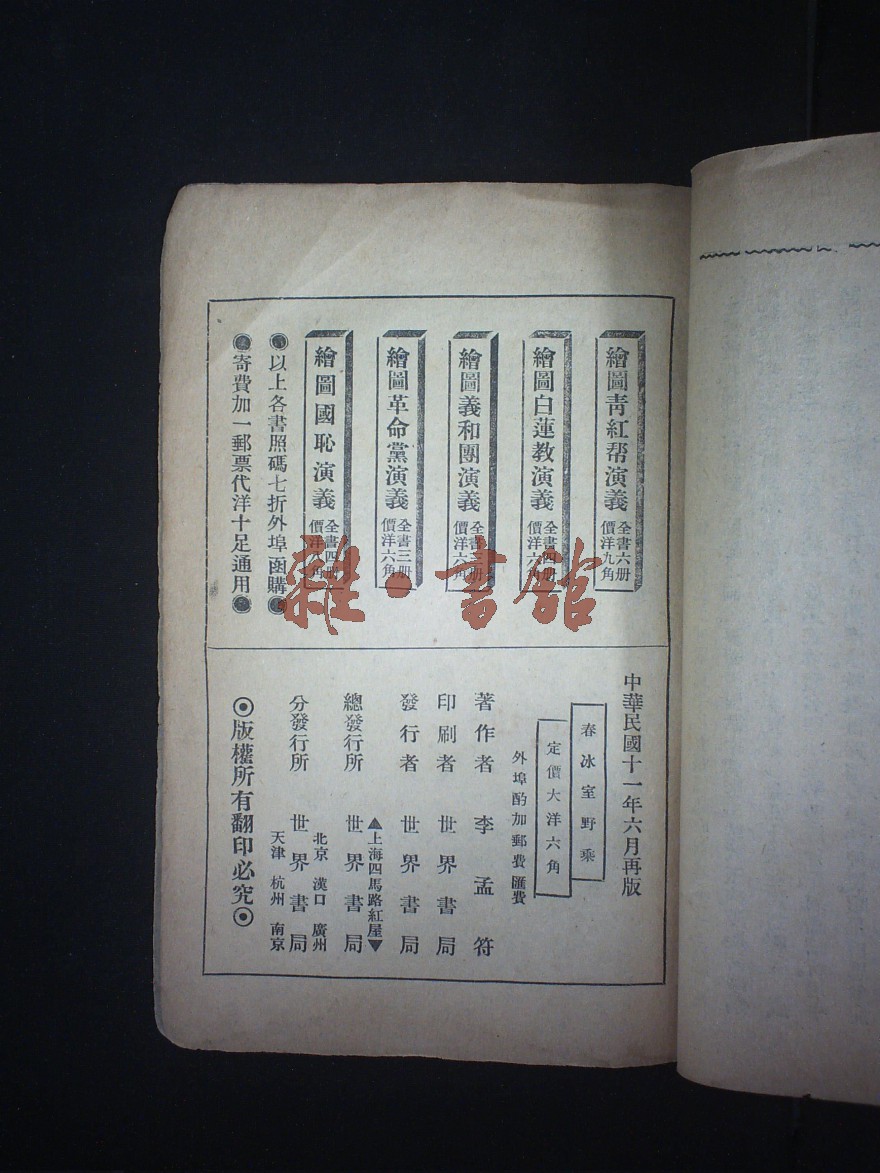 繪圖青紅帮演義
全書六册
價洋九角
繪圖白蓮教演義
全書四册
價洋六角
繪圖義和團演義
全書三册
價洋六角
繪圖革命黨演義
全書三册
價洋六角
繪圖國恥演義
全書四册
價洋八角
●以上各書照碼七折外埠函購●
●寄費加一郵票代洋十足通用●
中華民國十一年六月再版
春冰室野乘
定價大洋六角
外埠酌加郵費匯費
著作者 李孟符
印刷者 世界書局
發行者 世界書局
▲上海四馬路紅屋▼
總發行所 世界書局
北京 漢口 廣州
分發行所 世界書局
天津 杭州 南京
◎版權所有翻印必究◎
雜·書館